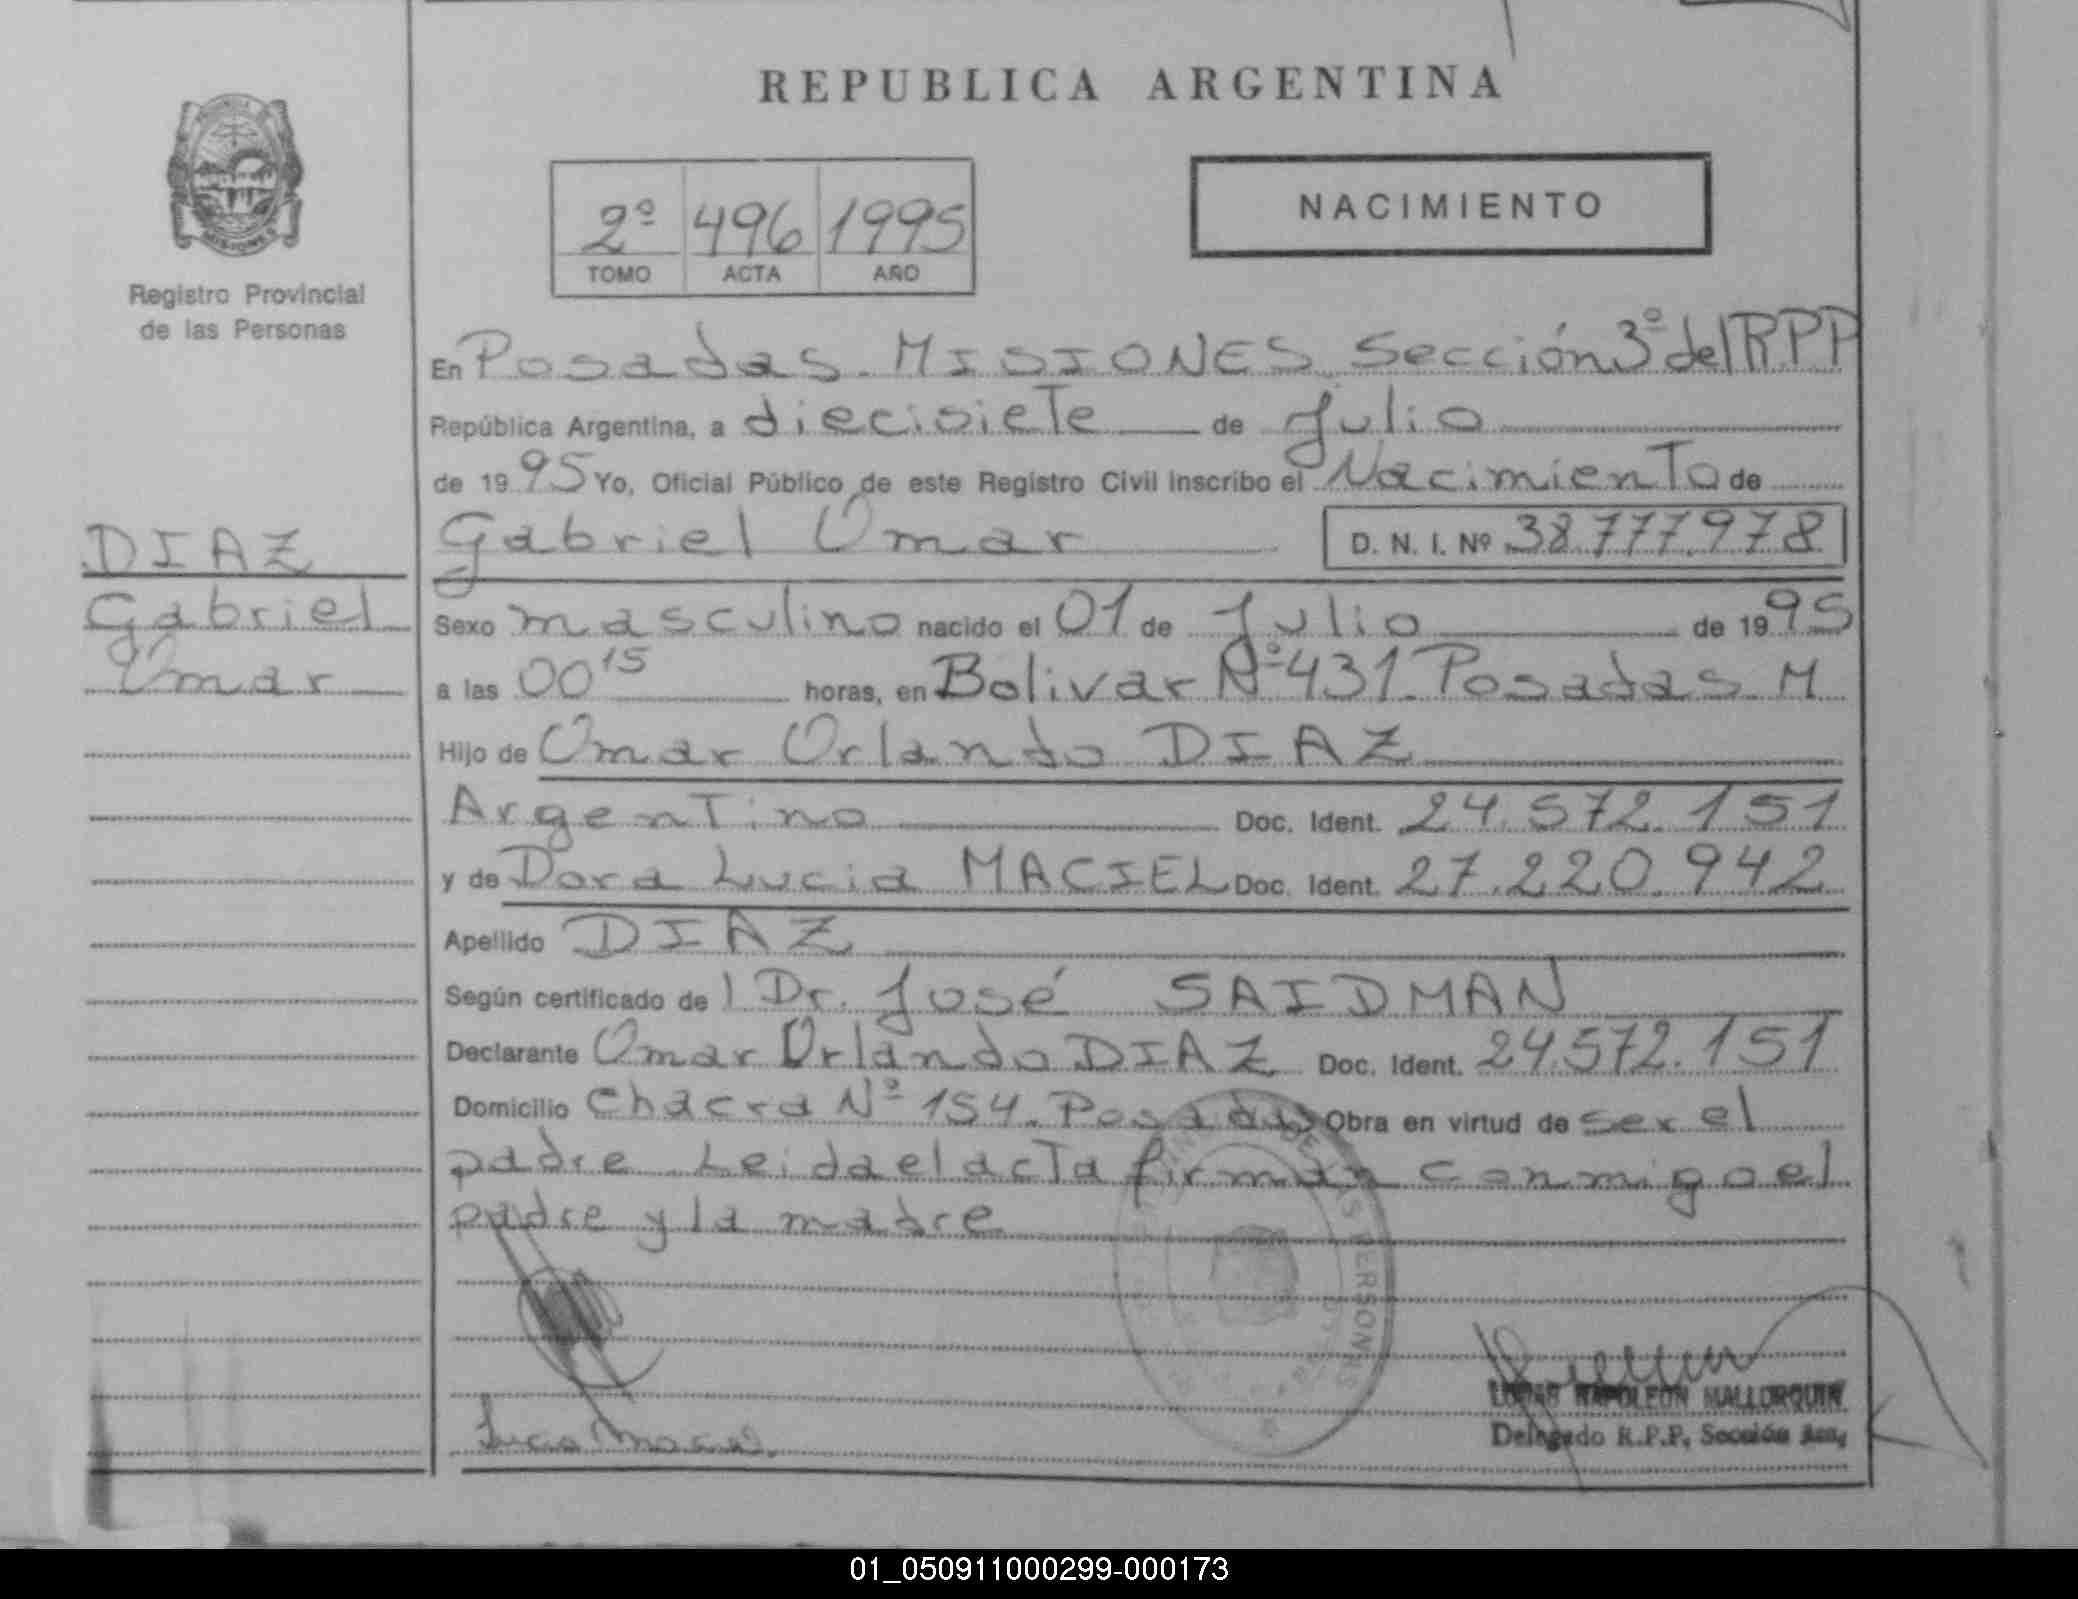 REPUBLICA ARGENTINA
NACIMIENTO
2º 496 1995
TOMO ACTA AÑO
MISIONES
Registro Provincial
de las Personas
En Posadas. MISIONES. Sección 3º del R.P.P
República Argentina, a diecisiete de Julio
de 1995 Yo, Oficial Público de este Registro Civil inscribo el Nacimiento de
Gabriel Omar D. N. I. Nº 38.777.978
DIAZ
Gabriel
Omar
Sexo masculino nacido el 01 de Julio de 1995
a las 00 15 horas, en Bolivar Nº 431. Posadas M
Hijo de Omar Orlando DIAZ
Argentino Doc. Ident. 24.572.151
y de Dora Lucia MACIEL Doc. Ident. 27.220.942
Apellido DIAZ
Según certificado de l Dr. José SAIDMAN
Declarante Omar Orlando DIAZ Doc. Ident. 24.572.151
Domicilio Chacra Nº 154. Posadas Obra en virtud de ser el
padre Leida el acta firman conmigo el
padre y la madre
PERSONAS
NAPOLEON MALLORQUIN
Delegado R.P.P. Sección 3ra.
01_050911000299-000173